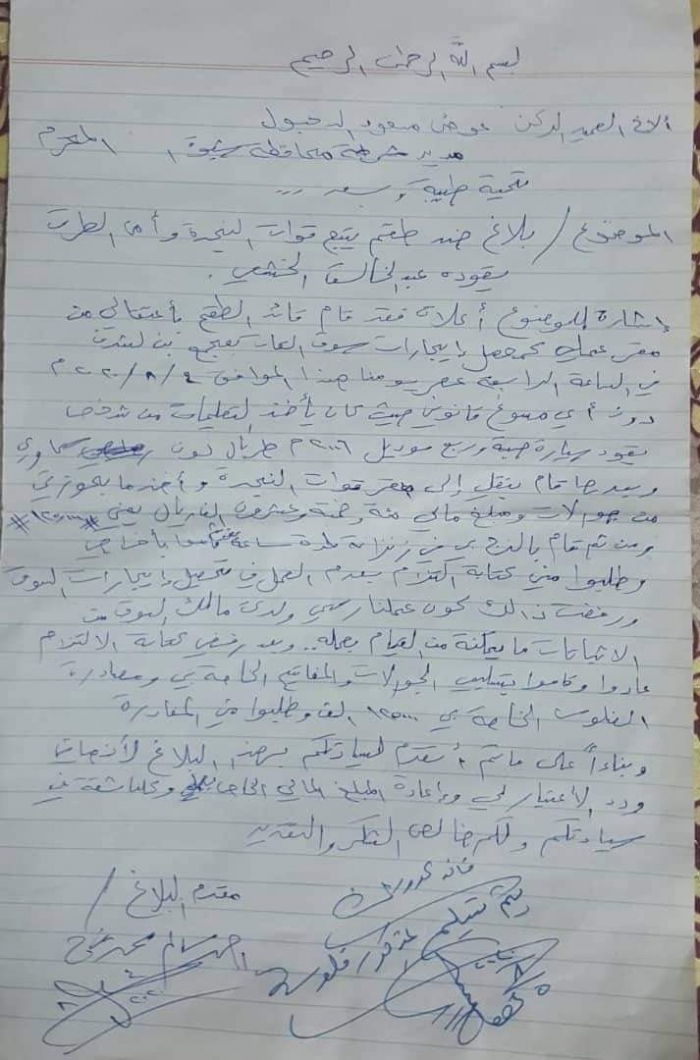 بسم الله الرحمن الرحيم
الأخ العميد الركن عوض مسعود الدحبول
مدير شرطة محافظة شبوة المحترم
تحية طيبة وبعد ،،،
الموضوع / بلاغ ضد طقم يتبع قوات النجدة وأمن الطرق
يقوده عبدالخالق الخشعي .
إشارة للموضوع أعلاه فقد قام قائد الطقم بأعتقالي من
مقر عملي كمحصل إيجارات سوق القات بعتق
في الساعة الرابعة عصر يومنا هذا الموافق ٤ / ٨ / ٢٠٢٠م
دون أي مسوغ قانوني حيث كان يأخذ التعليمات من شخص
يقود سيارة حبة وربع موديل ٢٠٠٦م طربال لون سماوي
وبعدها قام بنقلي إلى مقر قوات النجدة و أخذ ما بحوزتي
من جوالات ومبلغ مالي مئة وخمسة وعشرون الف ريال يمني #١٢٥٠٠٠#
ومن ثم قام بالزج بي في زنزانة لمدة ساعة
وطلبوا مني كتابة التزام بعدم العمل في تحصيل إيجارات السوق
ورفضت ذالك كون عملنا رسمي ولدى مالك السوق من
الاثباتات ما يمكنه من القيام بعمله .. وبعد رفضي كتابة الالتزام
عادوا وقاموا بتسليمي الجوالات والمفاتيح الخاصة بي ومصادرة
الفلوس الخاصة بي ١٢٥٠٠٠ الف وطلبوا مني المغادرة
وبناءاً على ماتم أتقدم لسيادتكم بهذا البلاغ لأنصافي
ورد الأعتبار لي وإعادة المبلغ المالي الخاص بي وكلنا ثقة في
سيادتكم ولكم خالص الشكر والتقدير
مقدم البلاغ /
سالم محمد
يتم تسليم